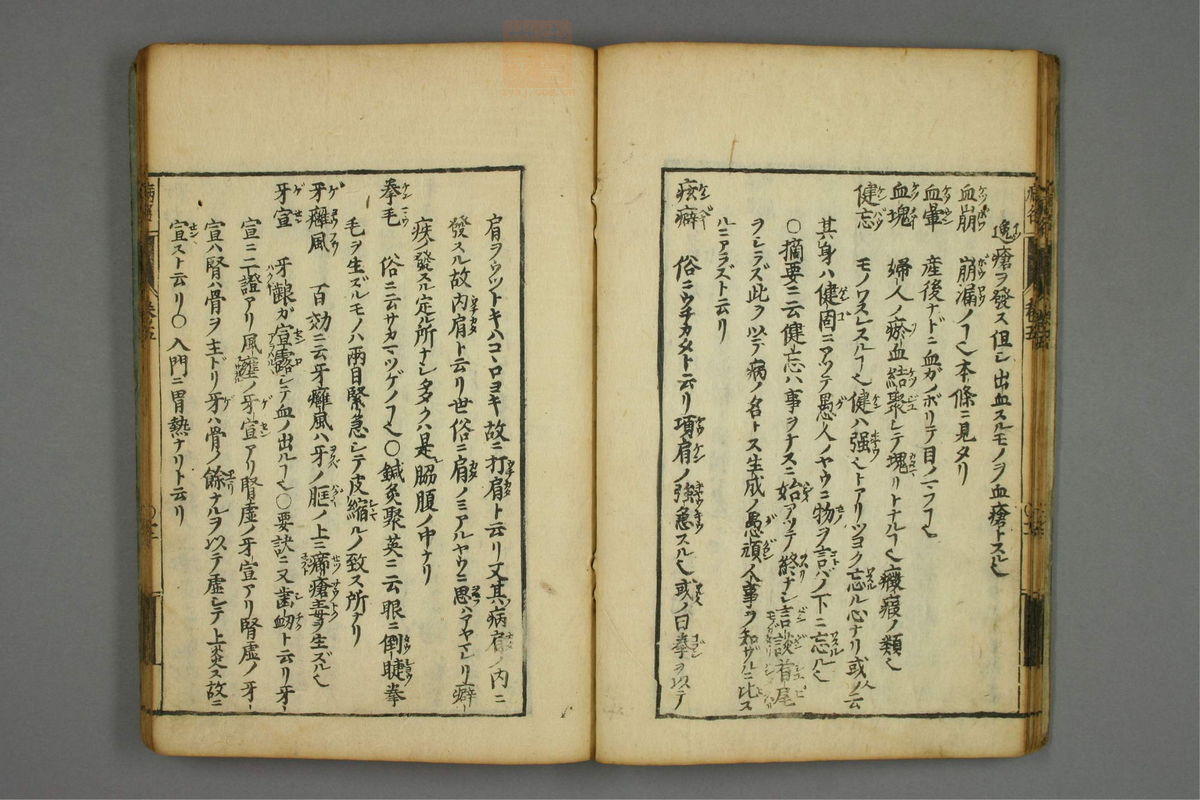 逸瘡ヲ發ス但シ出血スルモノヲ血瘡トスル也
血崩 崩漏ノコ也本條ニ見タリ
血暈 産後ナドニ血ガノボリテ目ノマフコ也
血塊 婦人ノ瘀血結聚シテ塊リトナルコ也癥瘕ノ類也
健忘 モノワスレスルコ也健ハ强也トアリツヨク忘ル心ナリ或人ノ云
其身ハ健固ニアツテ愚人ノヤウニ物ヲ言バノ下ニ忘ルコ也
〇摘要ニ云健忘ハ事ヲナスニ始アツテ終ナシ言談首尾
ヲシラズ此ヲ以テ病ノ名トス生成ノ愚頑人事ヲ知ザルニ比ス
ルニアラズト云リ
痃癖 俗ニウチカタト云リ項肩ノ强急スル也或ノ曰拳ヲ以テ
肩ヲウツトキハコヽロヨキ故ニ打肩ト云リ又其病肩ノ内ニ
發スル故内肩ト云リ世俗ニ肩ノミアルヤウニ思ハアヤマレリ癖
疾ノ發スル定ル所ナシ多クハ是脇腹ノ中ナリ
拳毛 俗ニ云サカマツゲノコ也〇鍼灸聚英ニ云眼ニ倒睫拳
毛ヲ生ズルモノハ兩目緊急シテ皮縮ルノ致ス所ナリ
牙癰風 百効ニ云牙癰風ハ牙ノ胵ノ上ニ癤瘡毒ヲ生ズル也
牙宣 牙齦ガ宣露シテ血ノ出ルコ也〇要訣ニ又齒衂ト云リ牙
宣ニ二證アリ風壅ノ牙宣アリ腎虚ノ牙宣アリ腎虚ノ牙
宣ハ腎ハ骨ヲ主ドリ牙ハ骨ノ餘ナルヲ以テ虚シテ上炎ス故ニ
宣スト云リ〇入門ニ胃熱ナリト云リ